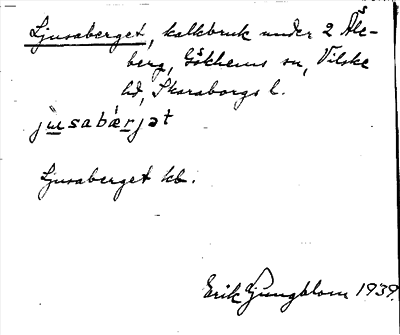 Ljusaberget, kalkbruk under 2 Åle-
berg, Gökhems sn, Vilske
hd, Skaraborgs l.
jusabärjət
Ljusaberget kb.
Erik Ljungblom 1939.